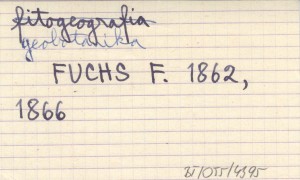 fitogeografia
geobotanika
FUCHS F. 1862,
1866
BT/055/4395